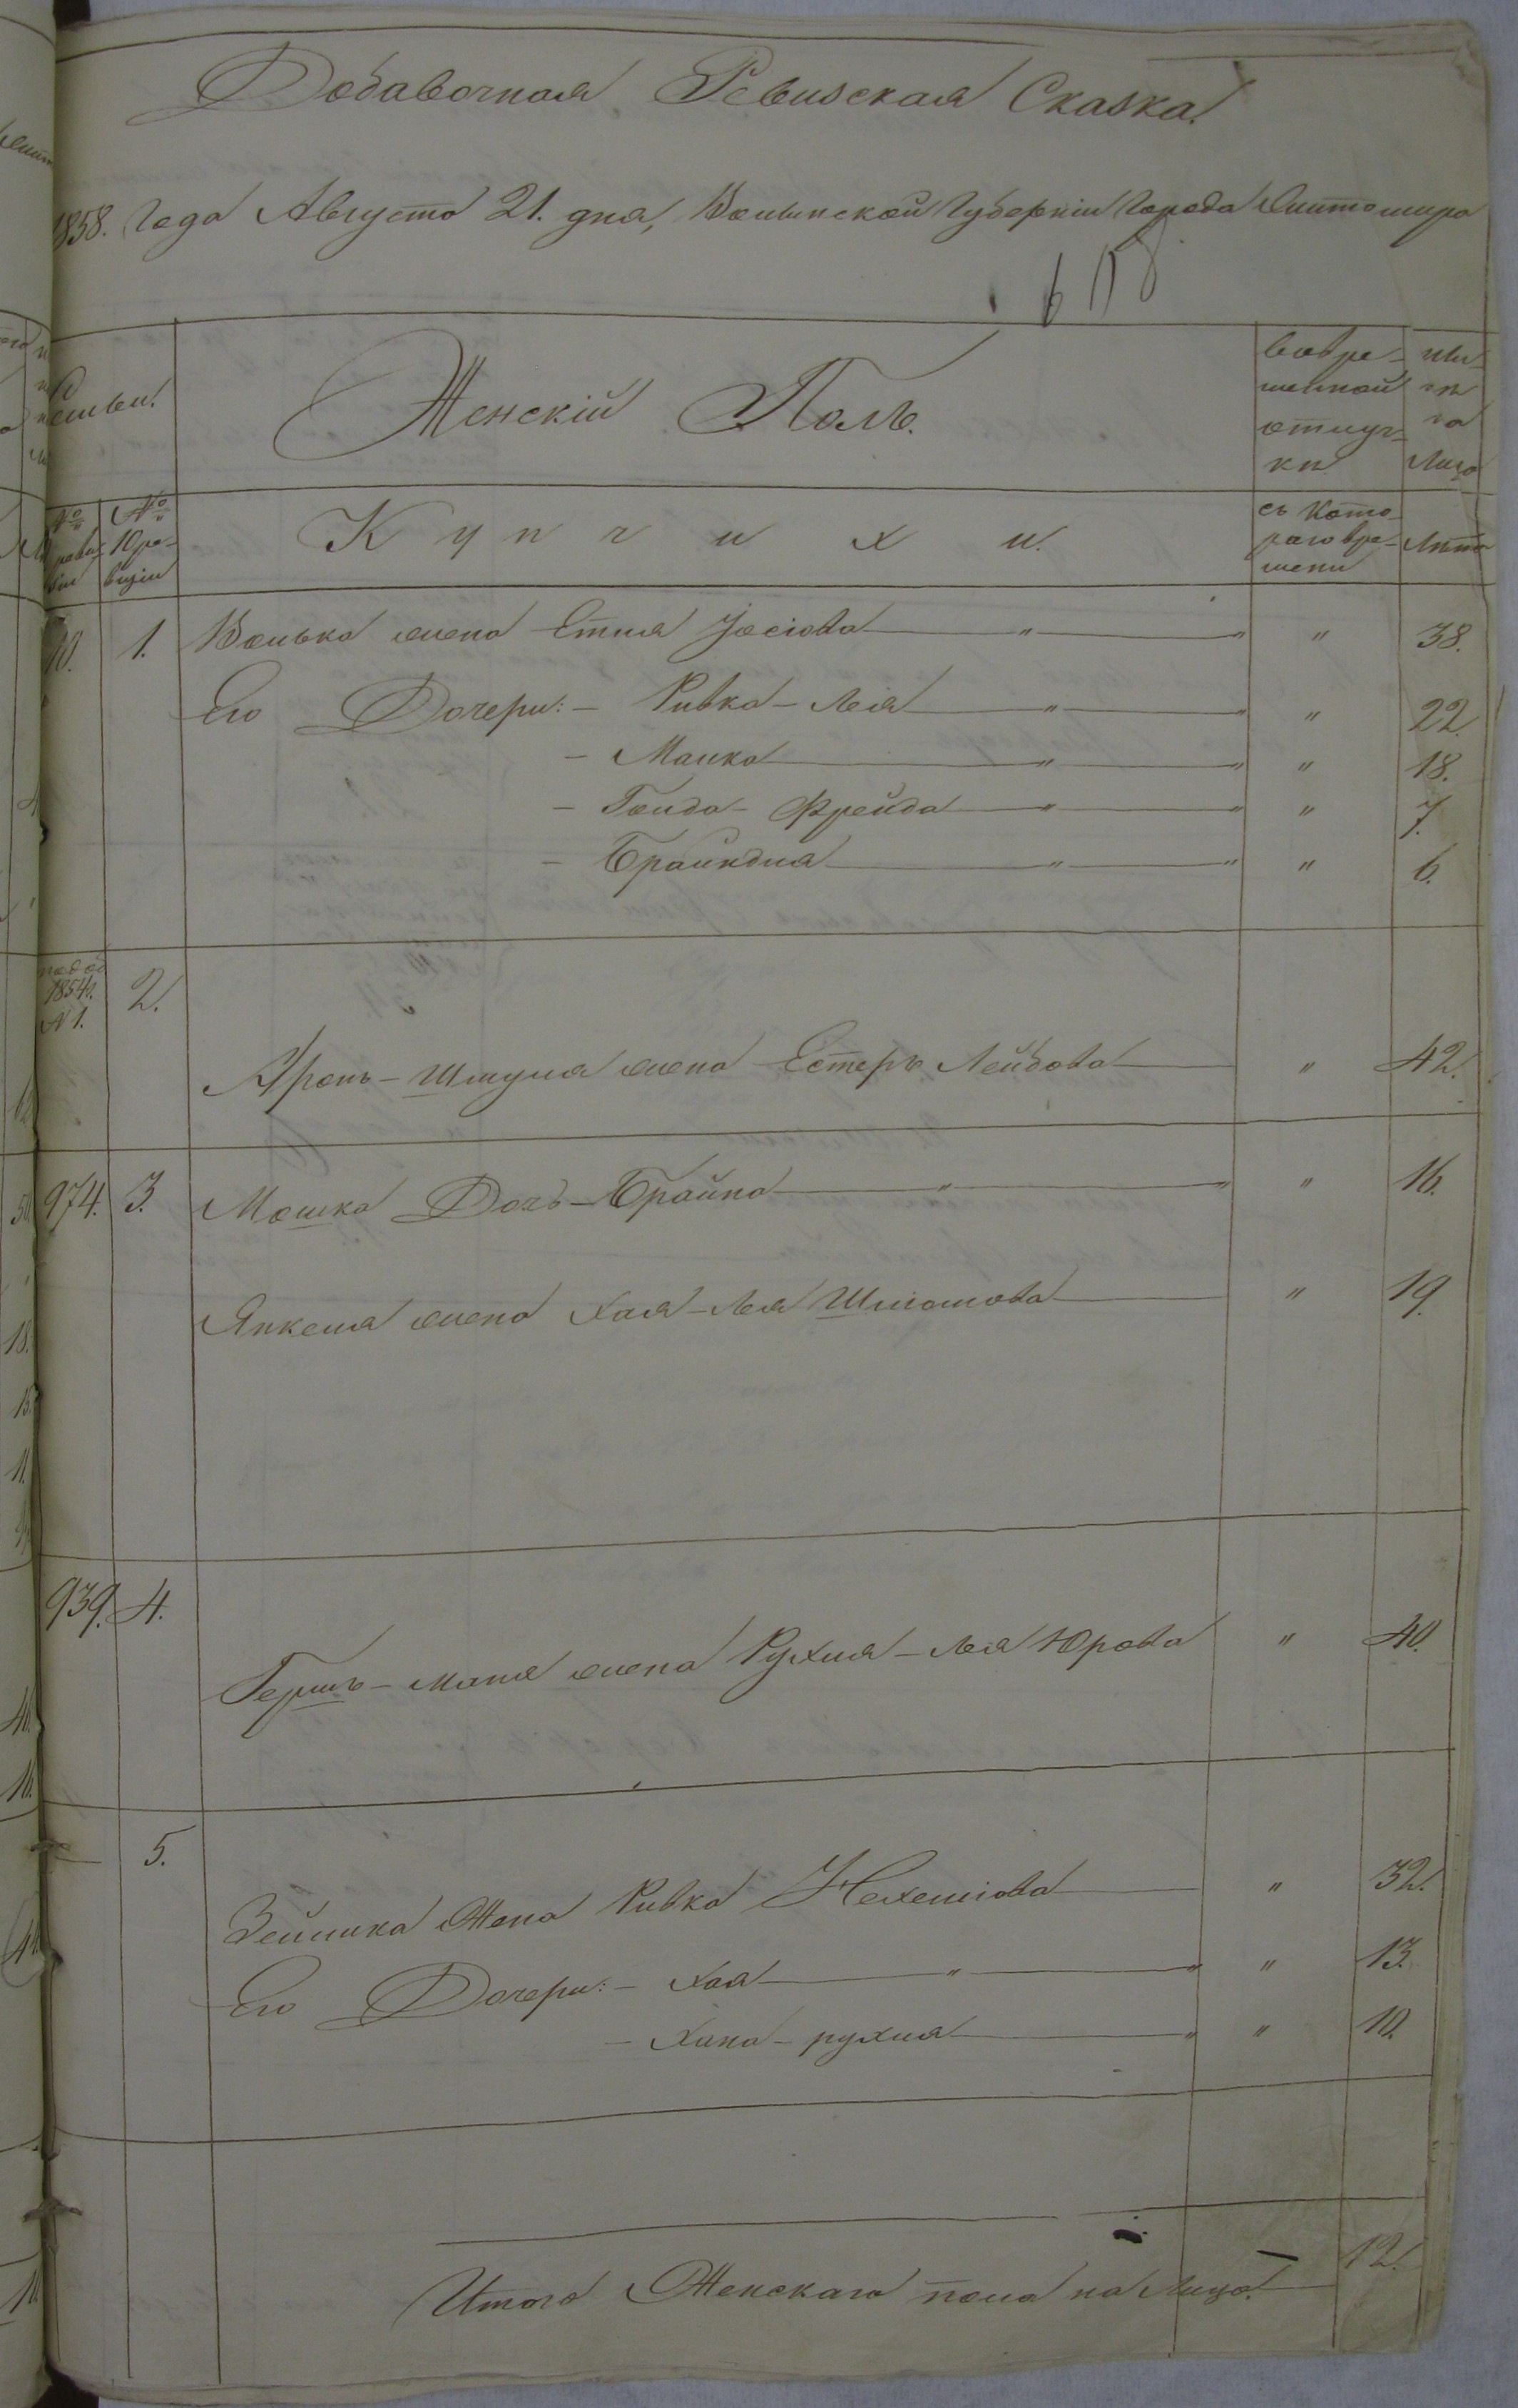 Добавочная Ревизская Сказка.
1858. Года Августа 21. дня, Волынской Губернiи Города Житомира
618
Семьи.
Женскiй Полъ.
Вовре-
менной
отлуч-
ки
ны-
нѣ
на
Лицо
№
№
10 ре-
визiи
Купчихи.
съ Кото-
раго вре-
мени
Лѣта
10. 1. Волька жена Етля Іосiова " " " 38.
Его Дочери: - Ривка - Лея " " " 22.
- Малка " " " 18.
- Голда - Фрейда " " " 7.
- Брайндля " " " 6.
1854г.
№ 1.
2.
Аронъ - Шмуля жена Естеръ Лейбова " 42.
974. 3. Мошка Дочь - Брайна " " " 16.
Янкеля жена Хая - Лея Шлiомова " 19.
939. 4.
Гершъ - Маня жена Рухля - Лея Юрова " 40.
5.
Зейлика Жена Ривка Нехемiова " 32.
Его Дочери: - Хая " " " 13.
- Хана - рухля " " 10.
Итого Женскаго пола на Лицо. 12.